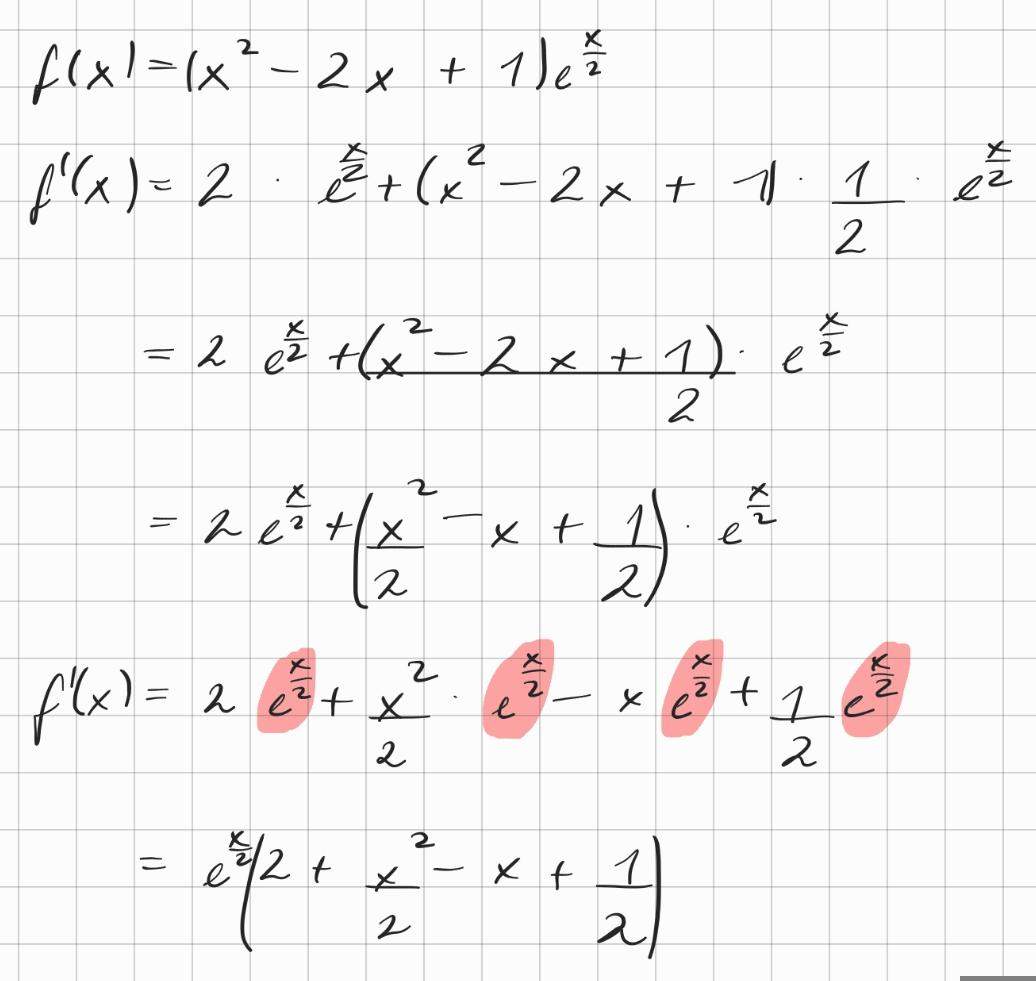 f(x)=(x²-2x+1)e^(x/2)
f'(x)=2·e^(x/2)+(x²-2x+1)·1/2·e^(x/2)
=2e^(x/2)+(x²-2x+1)/2·e^(x/2)
=2e^(x/2)+(x²/2-x+1/2)·e^(x/2)
f'(x)=2e^(x/2)+x²/2·e^(x/2)-xe^(x/2)+1/2e^(x/2)
=e^(x/2)(2+x²/2-x+1/2)